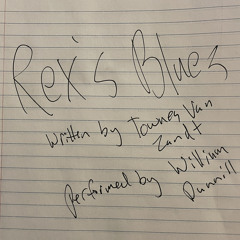 Rex's Blues
Written by Townes Van
Zandt
performed by William
Dunnill